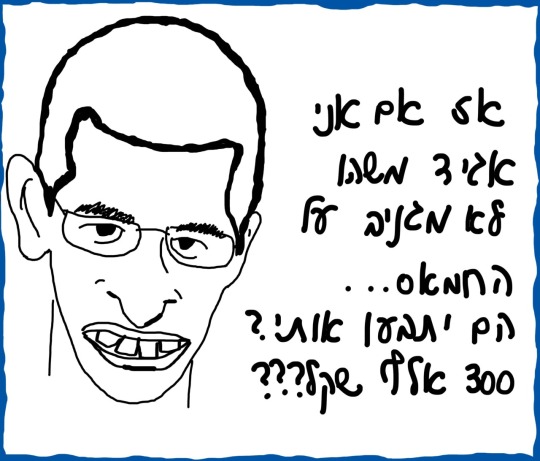 אז אם אני
אגיד משהו
לא מגניב על
החמאס...
הם יתבעו אותי?
300 אלף שקל???